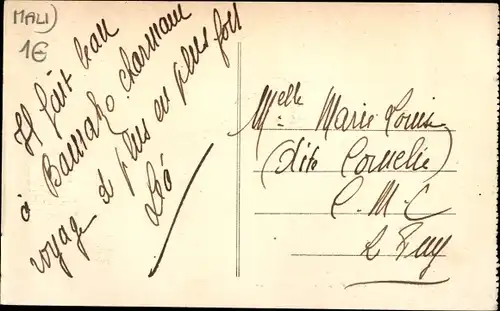 MALI)
1€
Il fait beau
à Bamako charmant
voyage de plus en plus fort
Léo
Melle Marie Louise
(dite Cornelie)
C. M. C
Le Puy